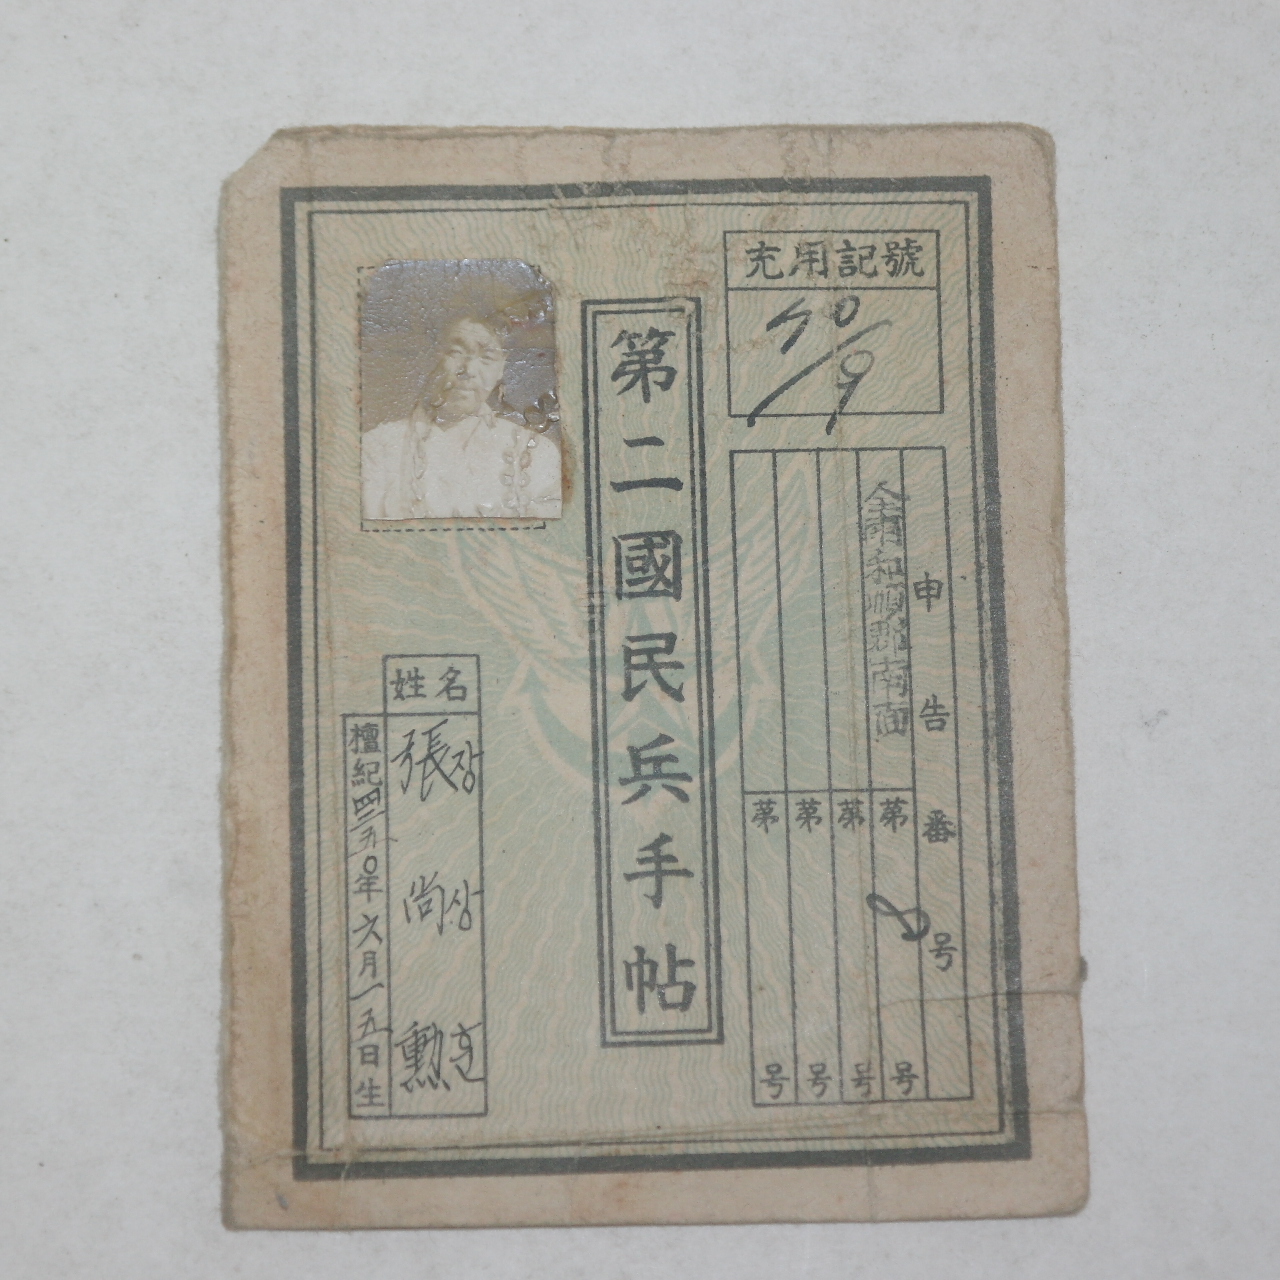 充用記號
40/9
申告番号
全南和順郡南面
第 号
第 号
第 号
第 号
第二國民兵手帖
姓名
張장 尙상 勳훈
檀紀四二五〇年六月一五日生